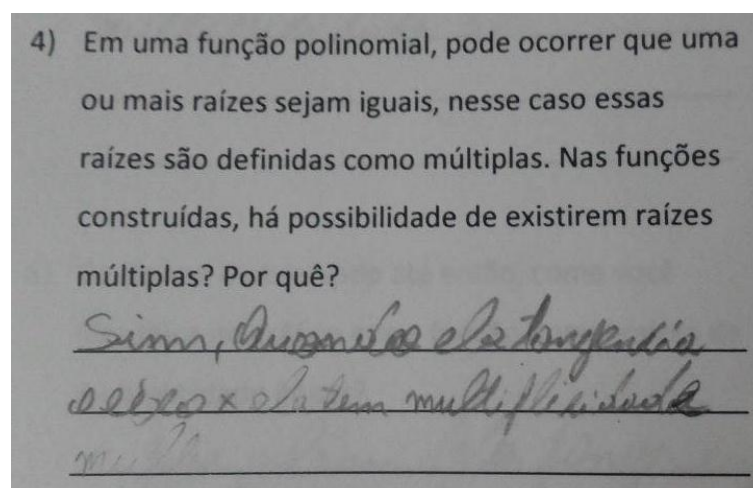 4) Em uma função polinomial, pode ocorrer que uma
ou mais raízes sejam iguais, nesse caso essas
raízes são definidas como múltiplas. Nas funções
construídas, há possibilidade de existirem raízes
múltiplas? Por quê?
Sim, Quando ela tangencia
o eixo x ela tem multiplicidade